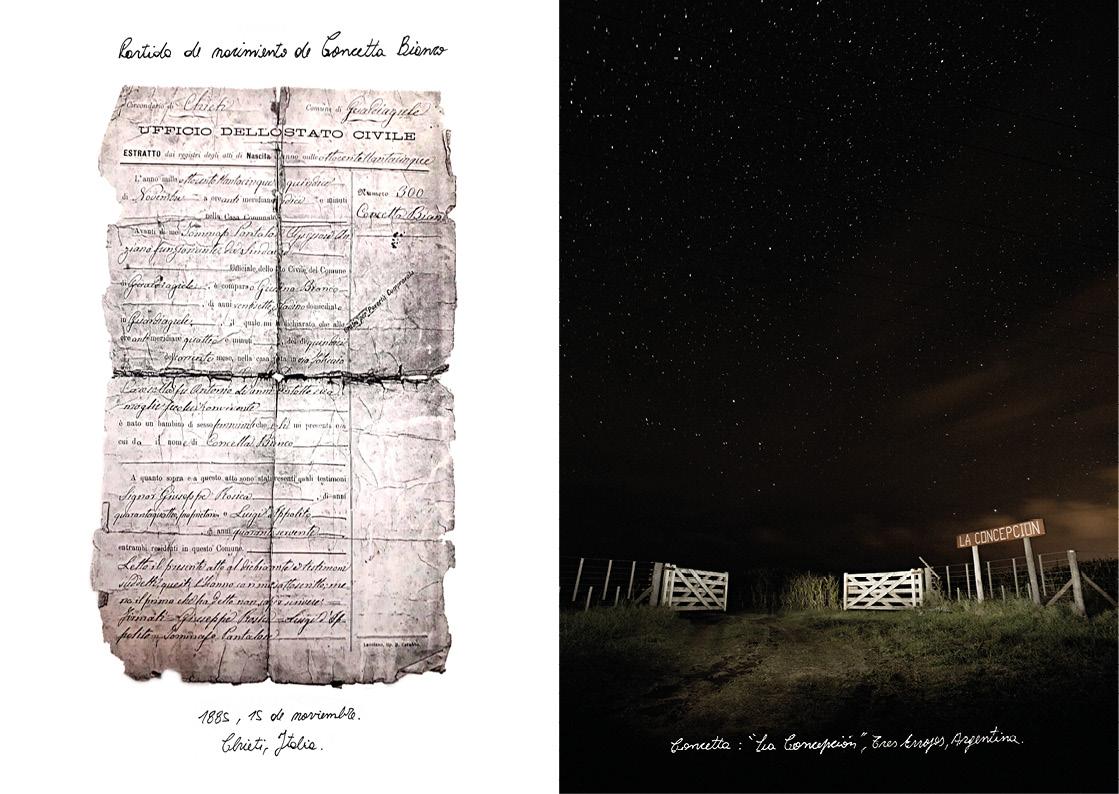 Partida de nacimiento de Concetta Bianco
Circondario di Chieti Comune di Guardiagrele
UFFICIO DELLO STATO CIVILE
ESTRATTO dai registri degli atti di Nascita anno mille ottocentottantacinque
L'anno mille ottocentottantacinque quindici
di Novembre a ore anti meridiane dieci e minuti
nella Casa Comunale
Numero 300
Concetta Bian
Avanti di me Tommaso Cantalo
ziano funzionante da Sindaco
Ufficiale dello Stato Civile del Comune
di Guardiagrele, è comparso Bianco
, di anni domiciliato
in Guardiagrele, il quale mi ha dichiarato che alle
ore anti meridiane quattro e minuti , del dì quindici
corrente mese, nella casa posta in
di Antonio di anni
moglie convivente
è nato un bambino di sesso femminile che mi presenta e a
cui da il nome di Concetta Bianco
A quanto sopra e a questo atto sono stati presenti quali testimoni
Signor Giuseppe Rosica , di anni
quarantaquattro, proprietario e Luigi d'Ippolito
di anni quaranta
entrambi residenti in questo Comune.
Letto il presente atto al dichiarante e testimoni
suddetti, questi l'hanno con me sottoscritto, me
no il primo che ha detto non sapere scrivere
Firmati Giuseppe Rosica Luigi d'Ip
polito Tommaso Cantalo
1885, 15 de noviembre.
Chieti, Italia.
LA CONCEPCION
Concetta: "La Concepción", Tres Arroyos, Argentina.